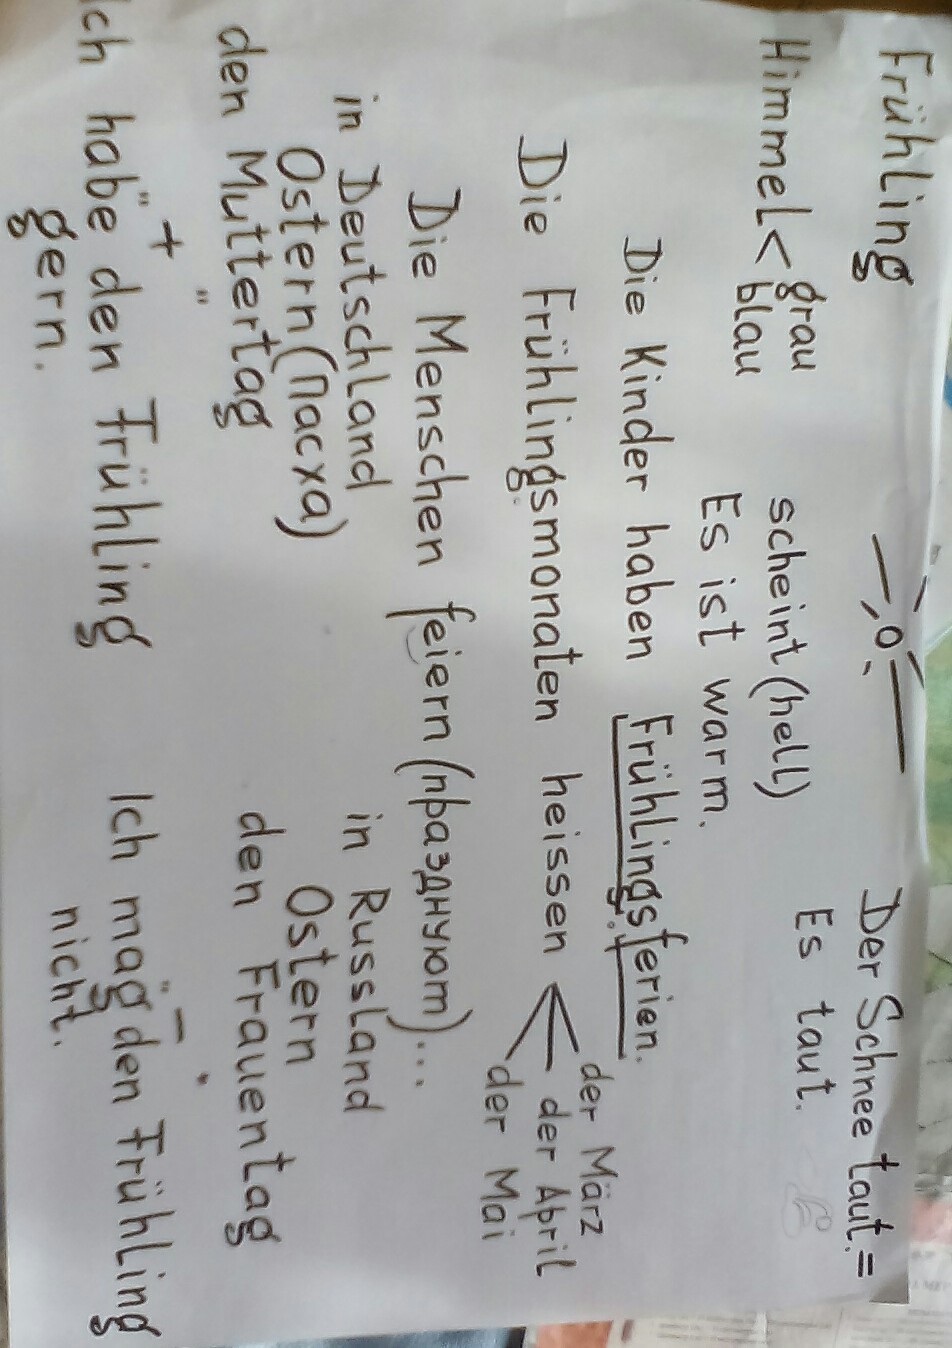 Frühling
Der Schnee taut. =
Es taut.
Himmel < grau
blau
scheint (hell)
Es ist warm.
Die Kinder haben Frühlingsferien.
Die Frühlingsmonaten heissen < der März
der April
der Mai
Die Menschen feiern (празднуют)...
in Deutschland
Ostern (Пасха)
den Muttertag
in Russland
Ostern
den Frauentag
"+"
Ich habe den Frühling
gern.
"–"
Ich mag den Frühling
nicht.